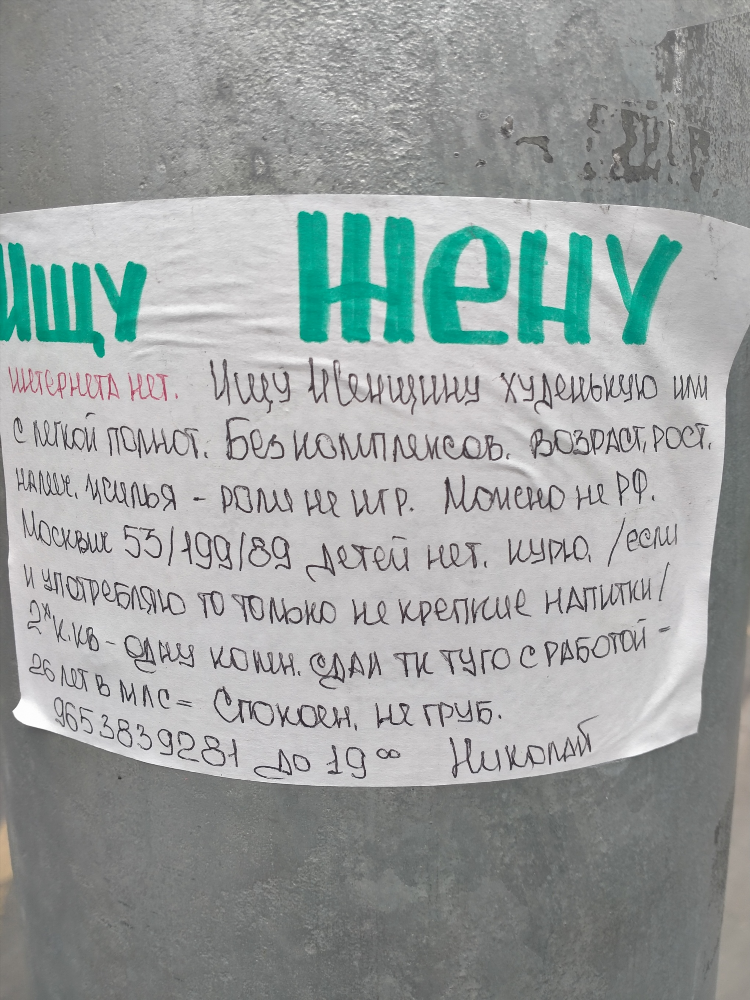 Ищу ЖЕНУ
ИНТЕРНЕТА НЕТ. Ищу Женщину худенькую или
с легкой полнот. Без комплексов. ВОЗРАСТ, РОСТ,
налич. жилья - роли не игр. Можно не РФ.
Москвич 53/199/89 детей нет. курю. /если
и употребляю то только не крепкие напитки/
2х к.кв - одну комн. сдал тк туго с работой -
26 лет в МЛС = Спокоен, не груб.
9653839281 до 19 00 Николай